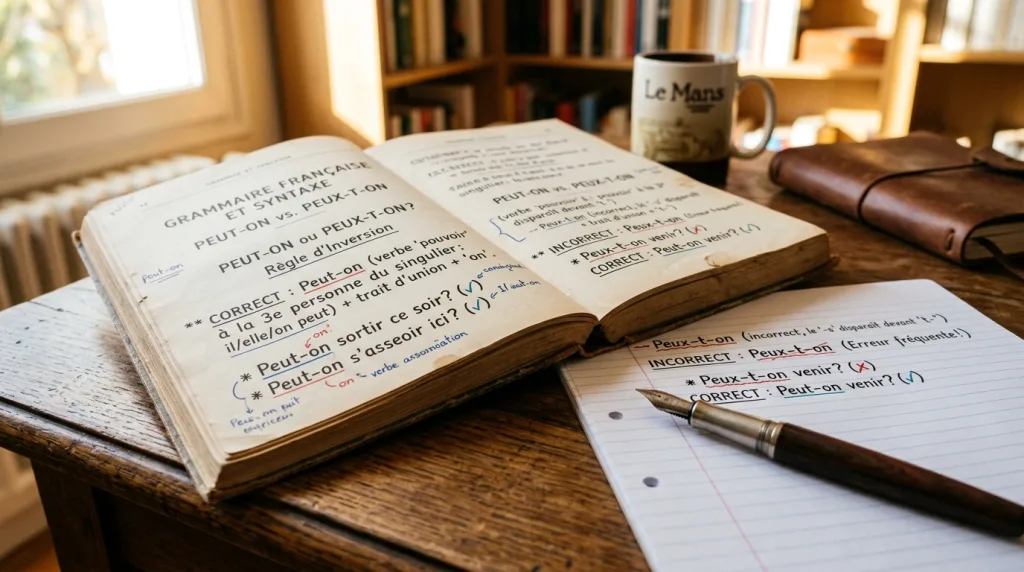 GRAMMAIRE FRANÇAISE
ET SYNTAXE
PEUT-ON vs. PEUX-T-ON
PEUT-ON ou PEUX-T-ON?
Règle d'Inversion
Peut-on
** CORRECT : Peut-on (verbe 'pouvoir'
à la 3e personne du singulier:
il/elle/on peut) + trait d'union + 'on'.
"on"
* Peut-on sortir ce soir? (✓)
* Peut-on s'asseoir ici? (✓)
"on"
verbe
PEUT-ON vs. PEUX-T-ON
(verbe 'pouvoir' à la 3e
disparaît devant 't-')
Peux-t-on (incorrect, le 's' disparaît
+ trait d'union + 't-'
** INCORRECT : Peux-t-on (Erreur fréquente!)
* Peux-t-on venir? (✗)
CORRECT : Peut-on venir? (✓)
Le Mans
– Peux-t-on (incorrect, le '-s' disparaît devant 't-')
INCORRECT : Peux-t-on (Erreur fréquente!)
* Peux-t-on venir? (✗)
CORRECT : Peut-on venir? (✓)